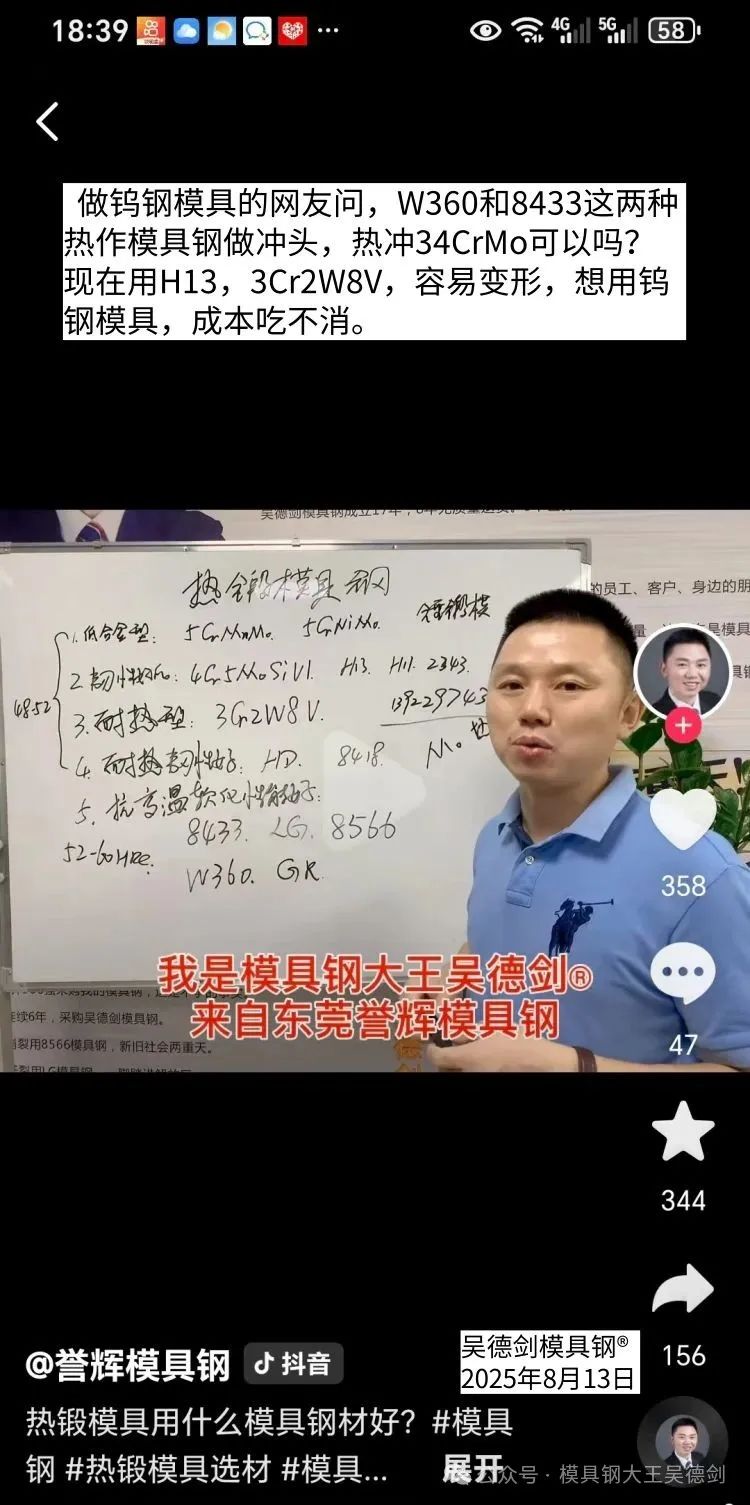 18:39
4G
5G
58
做钨钢模具的网友问，W360和8433这两种
热作模具钢做冲头，热冲34CrMo可以吗？
现在用H13，3Cr2W8V，容易变形，想用钨
钢模具，成本吃不消。
热锻模具钢
的员工、客户、身边的朋
1.低合金型：5CrMnMo. 5CrNiMo. 锤锻模
2.韧性好：4Cr5MoSiV1. H13. H11. 2343.
48-52
3.耐热型：3Cr2W8V.
139229743
4.耐热韧性好：HD. 8418.
5.抗高温软化性能好：
8433. LG. 8566
52-60HRC.
W360. GR.
我是模具钢大王吴德剑®
来自东莞誉辉模具钢
连续6年，采购吴德剑模具钢。
裂用8566模具钢，新旧社会两重天。
358
47
344
156
吴德剑模具钢®
2025年8月13日
@誉辉模具钢 抖音
热锻模具用什么模具钢材好？#模具
钢 #热锻模具选材 #模具... 展开
公众号 · 模具钢大王吴德剑